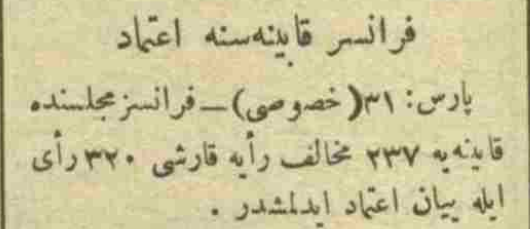 فرانسز قابینه‌سنه اعتماد
پارس: ۳۱ (خصوصی) ــ فرانسز مجلسنده
قابینه‌یه ۲۳۷ مخالف رأیه قارشی ۳۲۰ رأی
ایله بیان اعتماد ایدلمشدر .